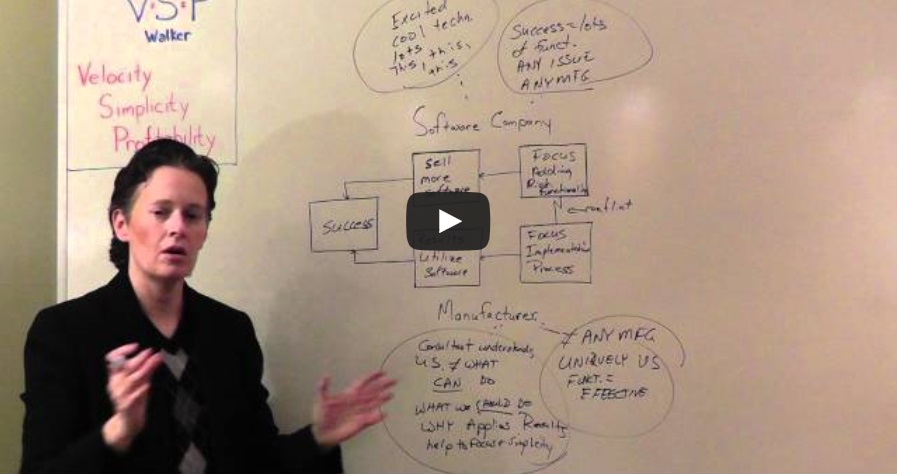 V.S.P
Walker
Velocity
Simplicity
Profitability
Excited
cool techn.
lots this,
this, this
Success = lots
of funct.
ANY ISSUE
ANY MFG
Software Company
Sell
more
Software
Focus
Adding
Functionality
Success
conflict
Utilize
Software
Focus
Implementation
Process
Manufacturer
Consultant understands
U.S. ≠ WHAT
CAN DO
WHAT we SHOULD DO
WHY Applies Results
help to focus + simplicity
≠ ANY MFG
UNIQUELY US
FUNCT. =
EFFECTIVE